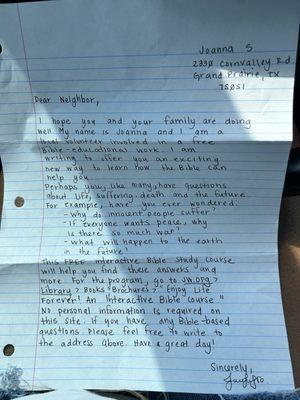 Joanna S
2330 Cornvalley Rd
Grand Prairie, TX
75051
Dear Neighbor,
I hope you and your family are doing
well. My name is Joanna and I am a
local volunteer involved in a free
Bible-educational work. I am
writing to offer you an exciting
new way to learn how the Bible can
help you.
Perhaps you, like many, have questions
about life, suffering, death and the future.
For example, have you ever wondered:
- Why do innocent people suffer?
- If everyone wants peace, why
is there so much war?
- What will happen to the earth
in the future?
This FREE interactive Bible study course
will help you find these answers and
more. For the program, go to JW.ORG >
Library > Books + Brochures > "Enjoy Life
Forever! An Interactive Bible Course."
No personal information is required on
this site. If you have any Bible-based
questions please feel free to write to
the address above. Have a great day!
Sincerely,